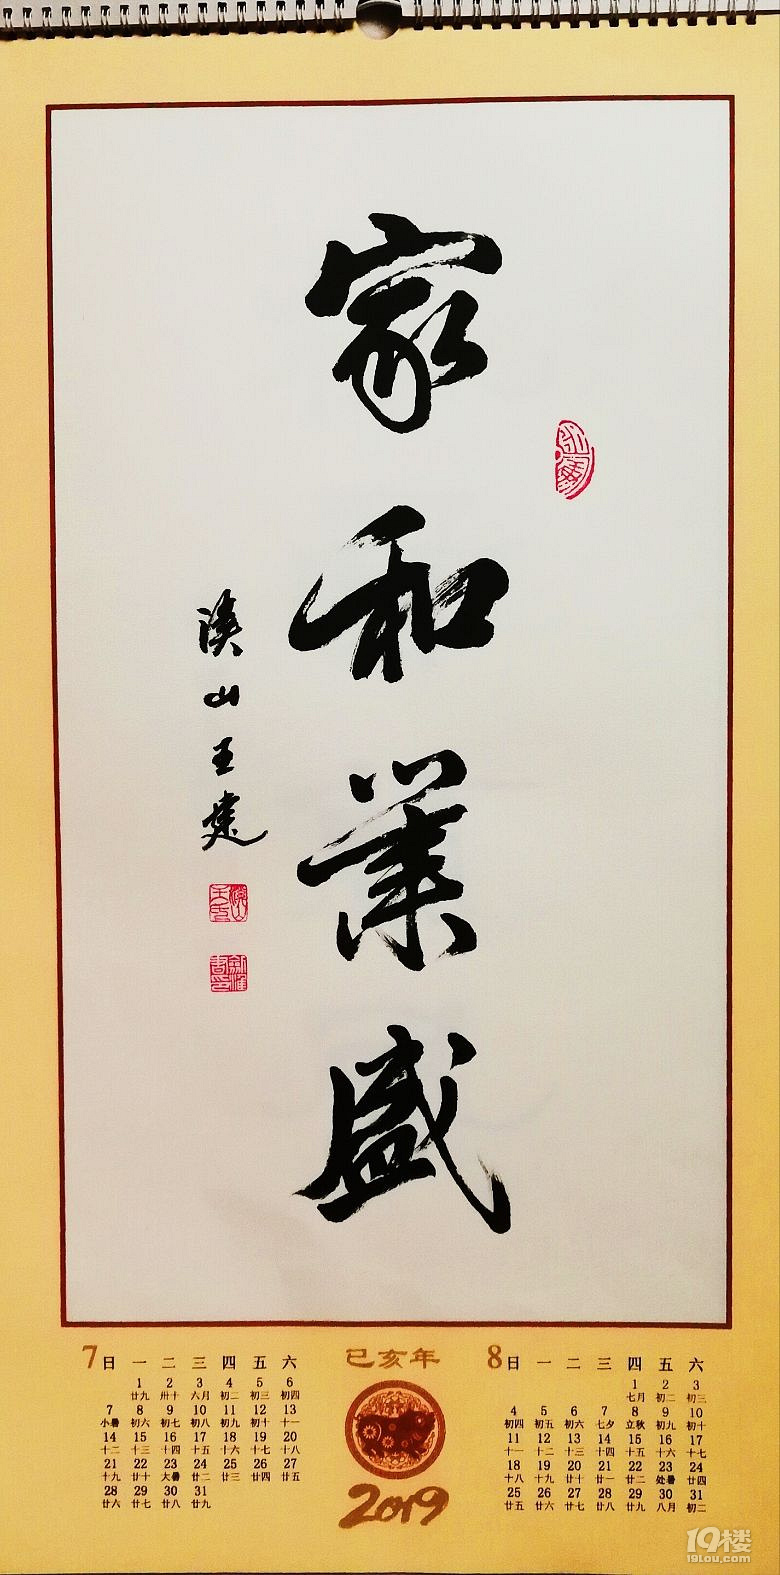 家和業盛
溪山王建
7 日 一 二 三 四 五 六
1 2 3 4 5 6
廿九 卅十 六月 初二 初三 初四
7 8 9 10 11 12 13
小暑 初六 初七 初八 初九 初十 十一
14 15 16 17 18 19 20
十二 十三 十四 十五 十六 十七 十八
21 22 23 24 25 26 27
十九 廿十 大暑 廿二 廿三 廿四 廿五
28 29 30 31
廿六 廿七 廿八 廿九
己亥年
2019
8 日 一 二 三 四 五 六
1 2 3
七月 初二 初三
4 5 6 7 8 9 10
初四 初五 初六 七夕 立秋 初九 初十
11 12 13 14 15 16 17
十一 十二 十三 十四 十五 十六 十七
18 19 20 21 22 23 24
十八 十九 廿十 廿一 廿二 处暑 廿四
25 26 27 28 29 30 31
廿五 廿六 廿七 廿八 廿九 八月 初二
19楼
19lou.com